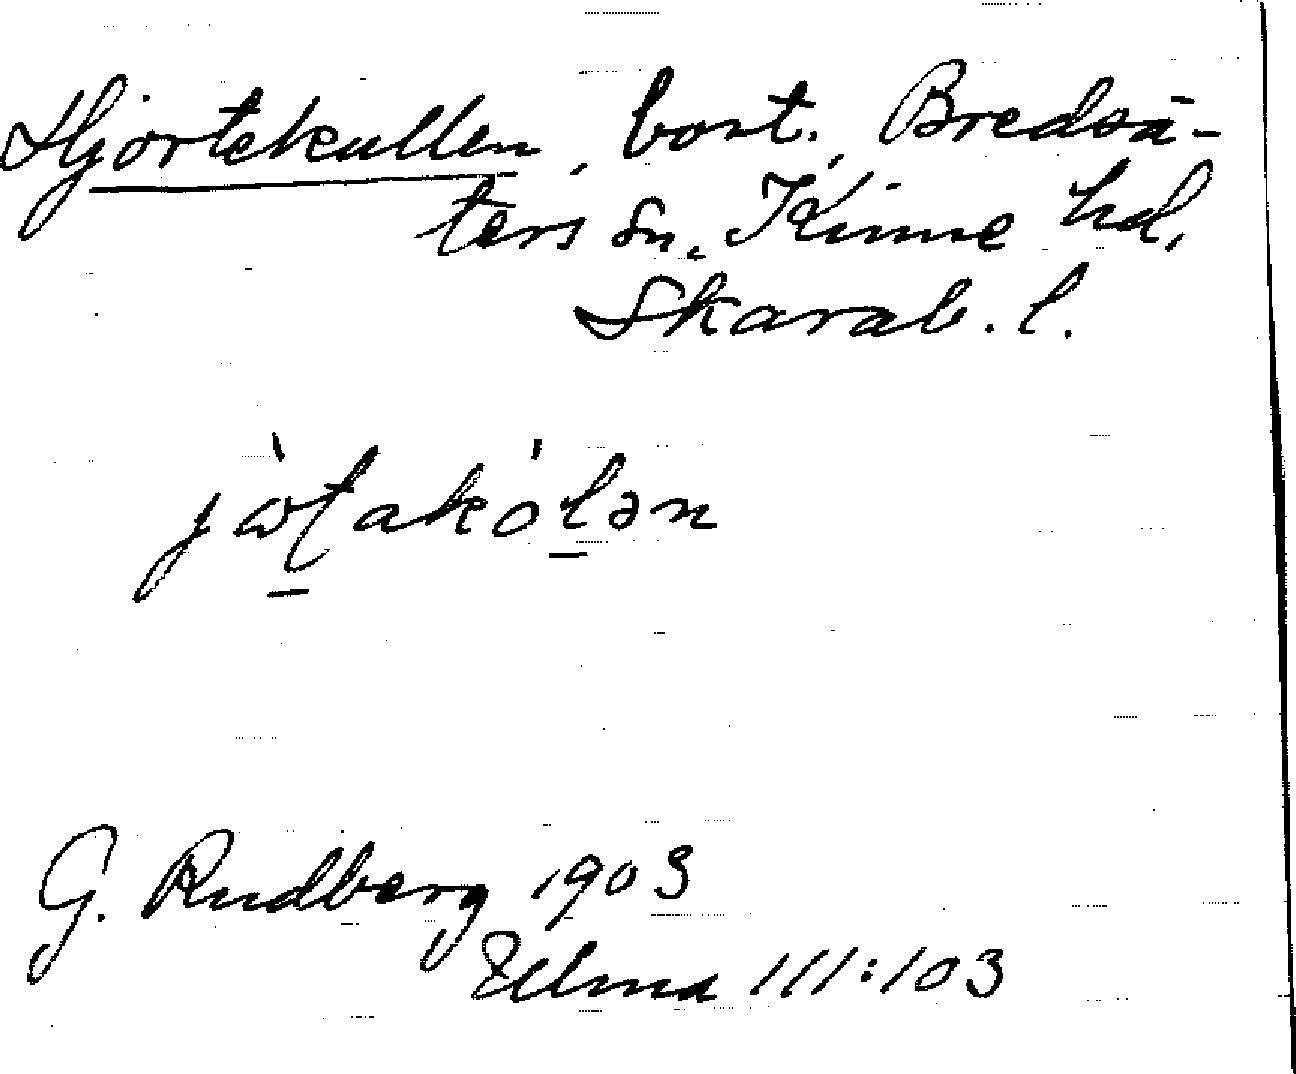 Hjortekullen, bort., Bredsä-
ters sn., Kinne hd,
Skarab. l.
G. Rudberg 1903
Ulma 111:103